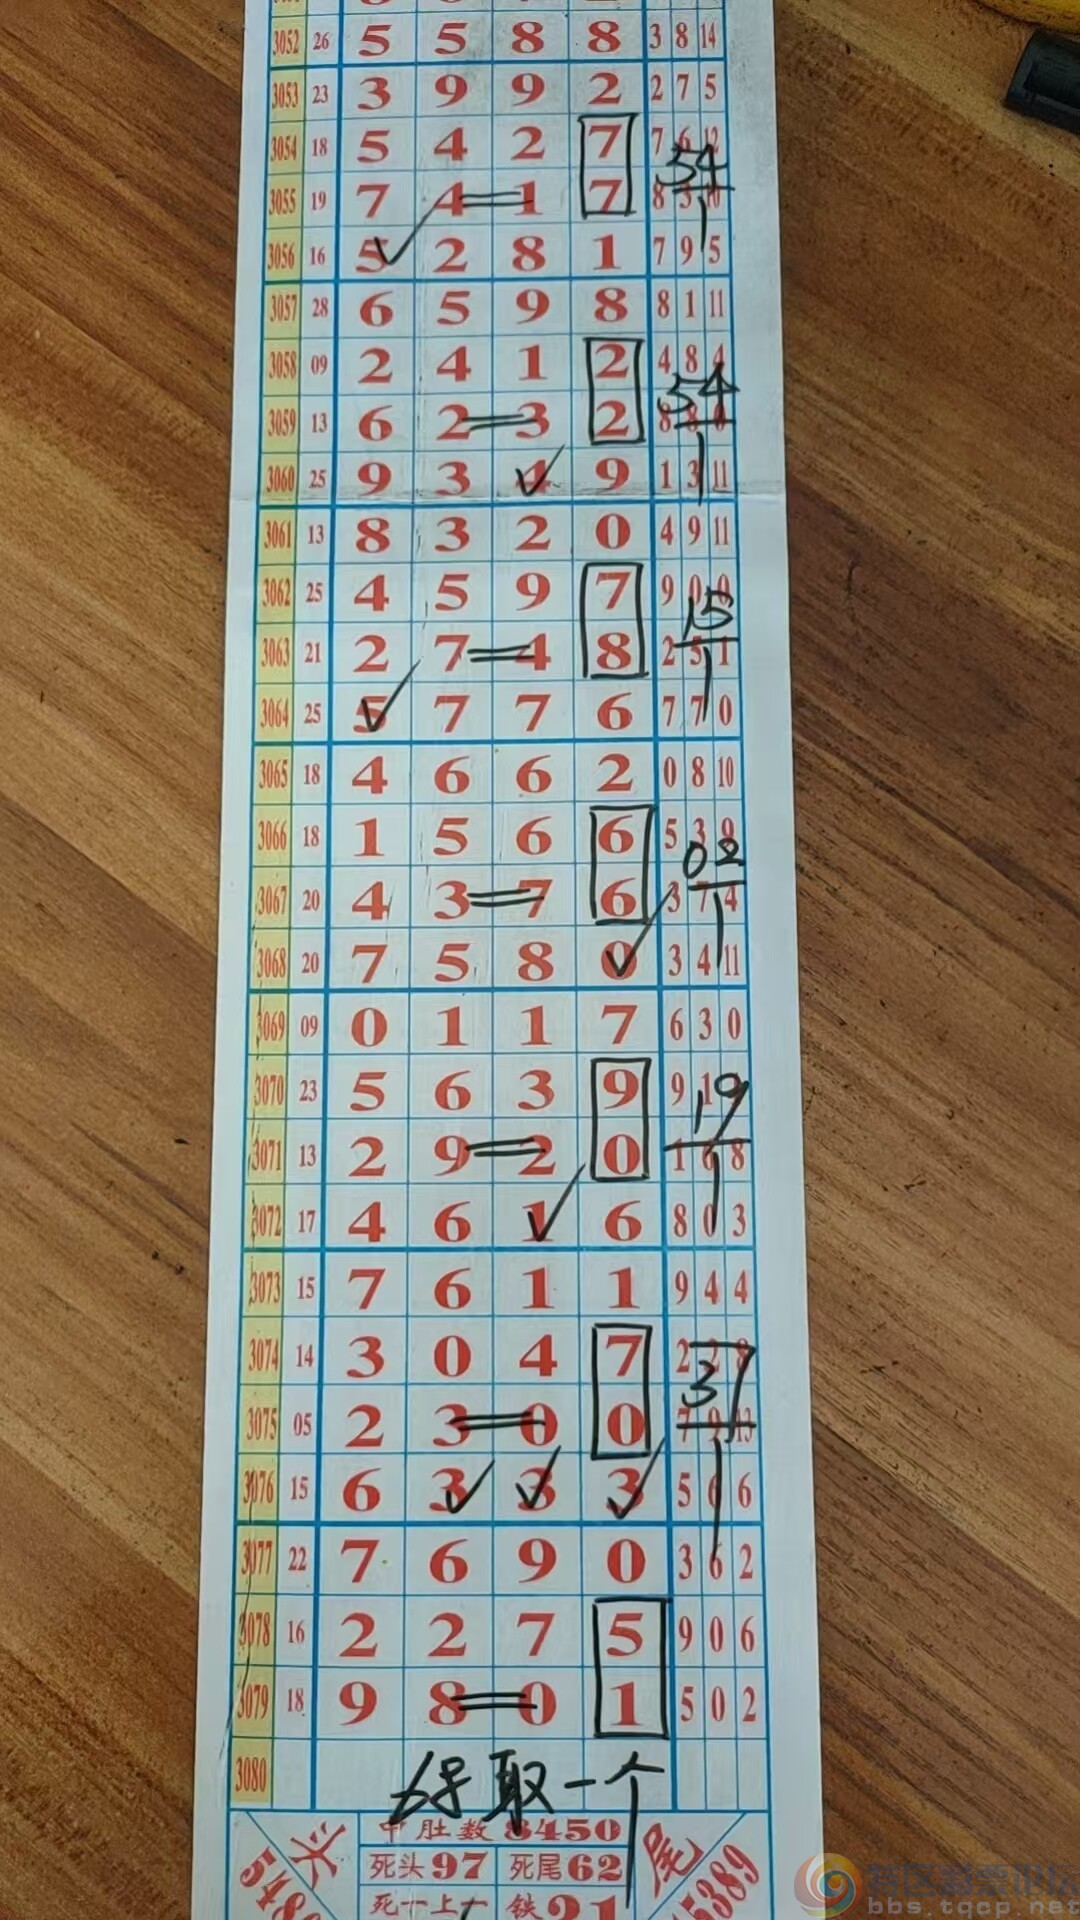 3052 26 5 5 8 8 3 8 14
3053 23 3 9 9 2 2 7 5
3054 18 5 4 2 7 7 6 12
54
3055 19 7 4 1 7 8 3 10
3056 16 5 2 8 1 7 9 5
3057 28 6 5 9 8 8 1 11
3058 09 2 4 1 2 4 8 4
54
3059 13 6 2 3 2 8 8 0
3060 25 9 3 4 9 1 3 11
3061 13 8 3 2 0 4 9 11
3062 25 4 5 9 7 9 0 0
15
3063 21 2 7 4 8 2 5 1
3064 25 5 7 7 6 7 7 0
3065 18 4 6 6 2 0 8 10
3066 18 1 5 6 6 5 3 9
02
3067 20 4 3 7 6 3 7 4
3068 20 7 5 8 0 3 4 11
3069 09 0 1 1 7 6 3 0
3070 23 5 6 3 9 9 1
19
3071 13 2 9 2 0 1 6 8
3072 17 4 6 1 6 8 0 3
3073 15 7 6 1 1 9 4 4
3074 14 3 0 4 7 2 2 8
37
3075 05 2 3 0 0 7 9 13
3076 15 6 3 3 3 5 6 6
3077 22 7 6 9 0 3 6 2
3078 16 2 2 7 5 9 0 6
3079 18 9 8 0 1 5 0 2
3080
68 取一个
中肚数 8450
头 死头 97 死尾 62 尾
5389
死一上 铁 21
bbs.tqcp.net